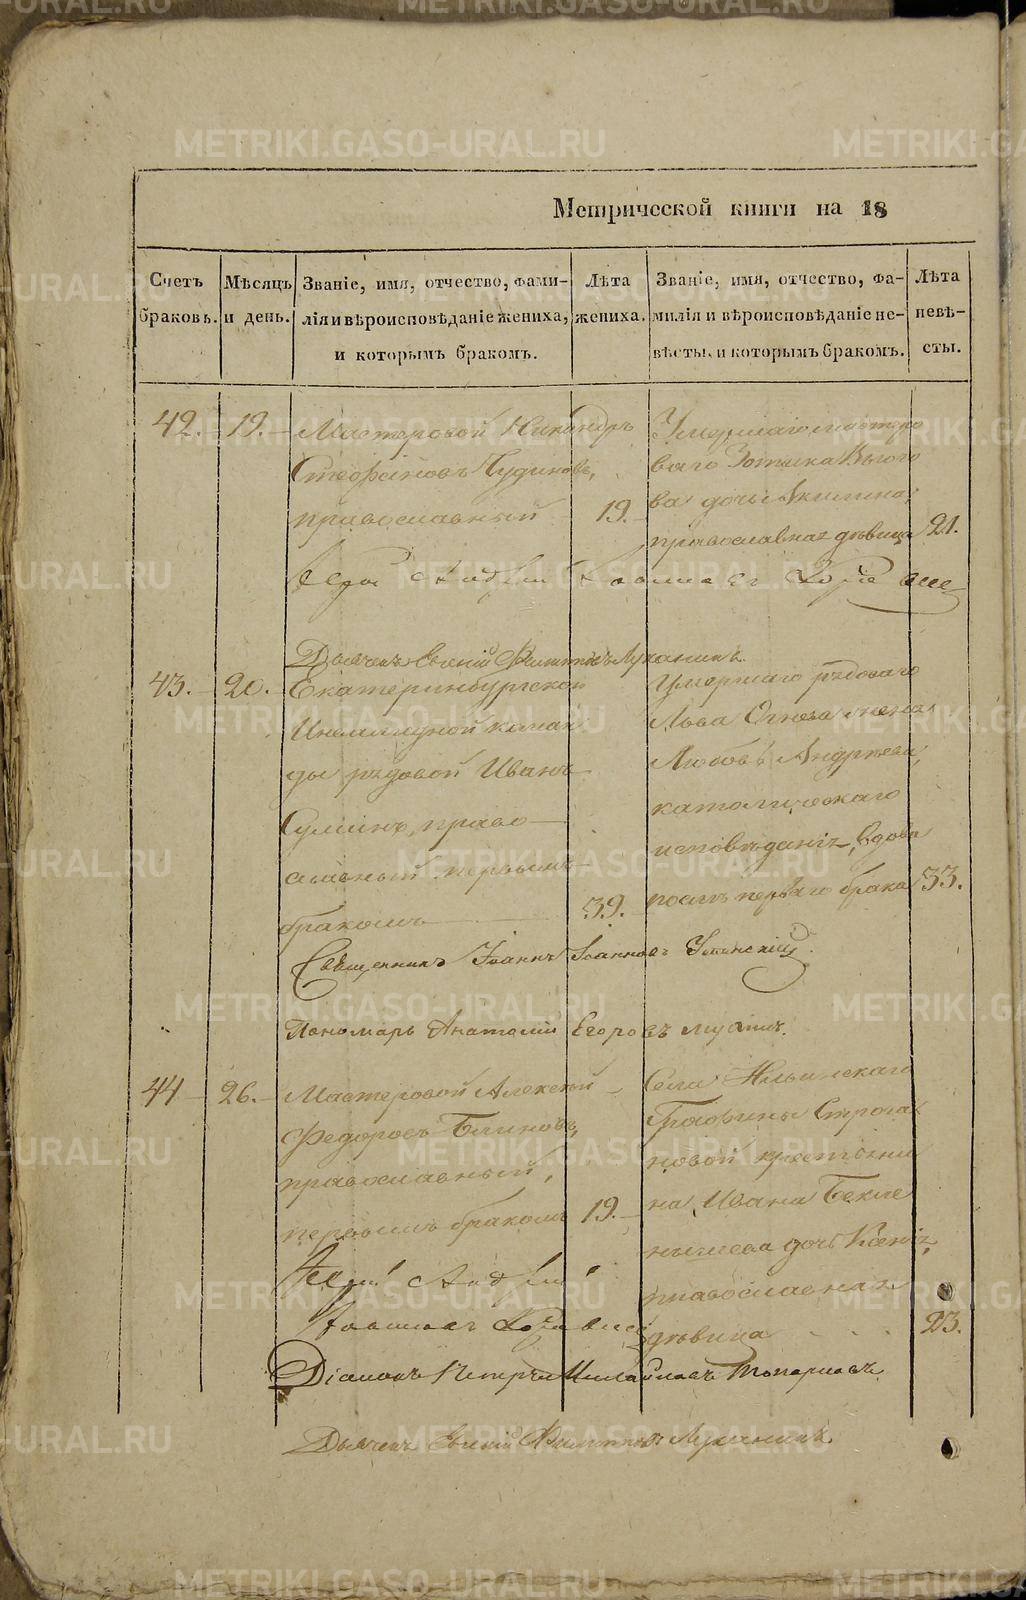 Метрической книги на 18
Счетъ браковъ.
Мѣсяцъ и день.
Званіе, имя, отчество, фами-
лія и вѣроисповѣданіе жениха,
и которымъ бракомъ.
Лѣта
жениха.
Званіе, имя, отчество, фа-
милія и вѣроисповѣданіе не-
вѣсты, и которымъ бракомъ.
Лѣта
невѣ-
сты.
42. 19.
Мастеровой Никандръ
Стефановъ Чудиновъ,
православный
19.
Умершаго мастеро
ваго Зотика
ва дочь Акилина,
православная дѣвица 21.
Андрей
Дьячекъ Евгеній Филипповъ Луканинъ
43. 20.
Екатеринбургской
Инвалидной коман
ды рядовой Иванъ
Сулинъ, право
славный первымъ
бракомъ
39.
Умершаго рядоваго
Льва жена
Любовь Андреева,
католическаго
исповѣданія, вдова
послѣ перваго брака 33.
Священникъ Іоаннъ Іоанновъ
Пономарь Анатолій Егоровъ
44 26.
Мастеровой Алексѣй
Федоровъ Блиновъ,
православный,
первымъ бракомъ 19.
Села Ильинскаго
Графини Строга
новой крестьяни
на Ивана Бекле
мышева дочь Ксенія,
православная
дѣвица 23.
Андрей
Діаконъ Петръ Михайловъ Топорковъ
Дьячекъ Евгеній Филипповъ Луканинъ
METRIKI.GASO-URAL.RU